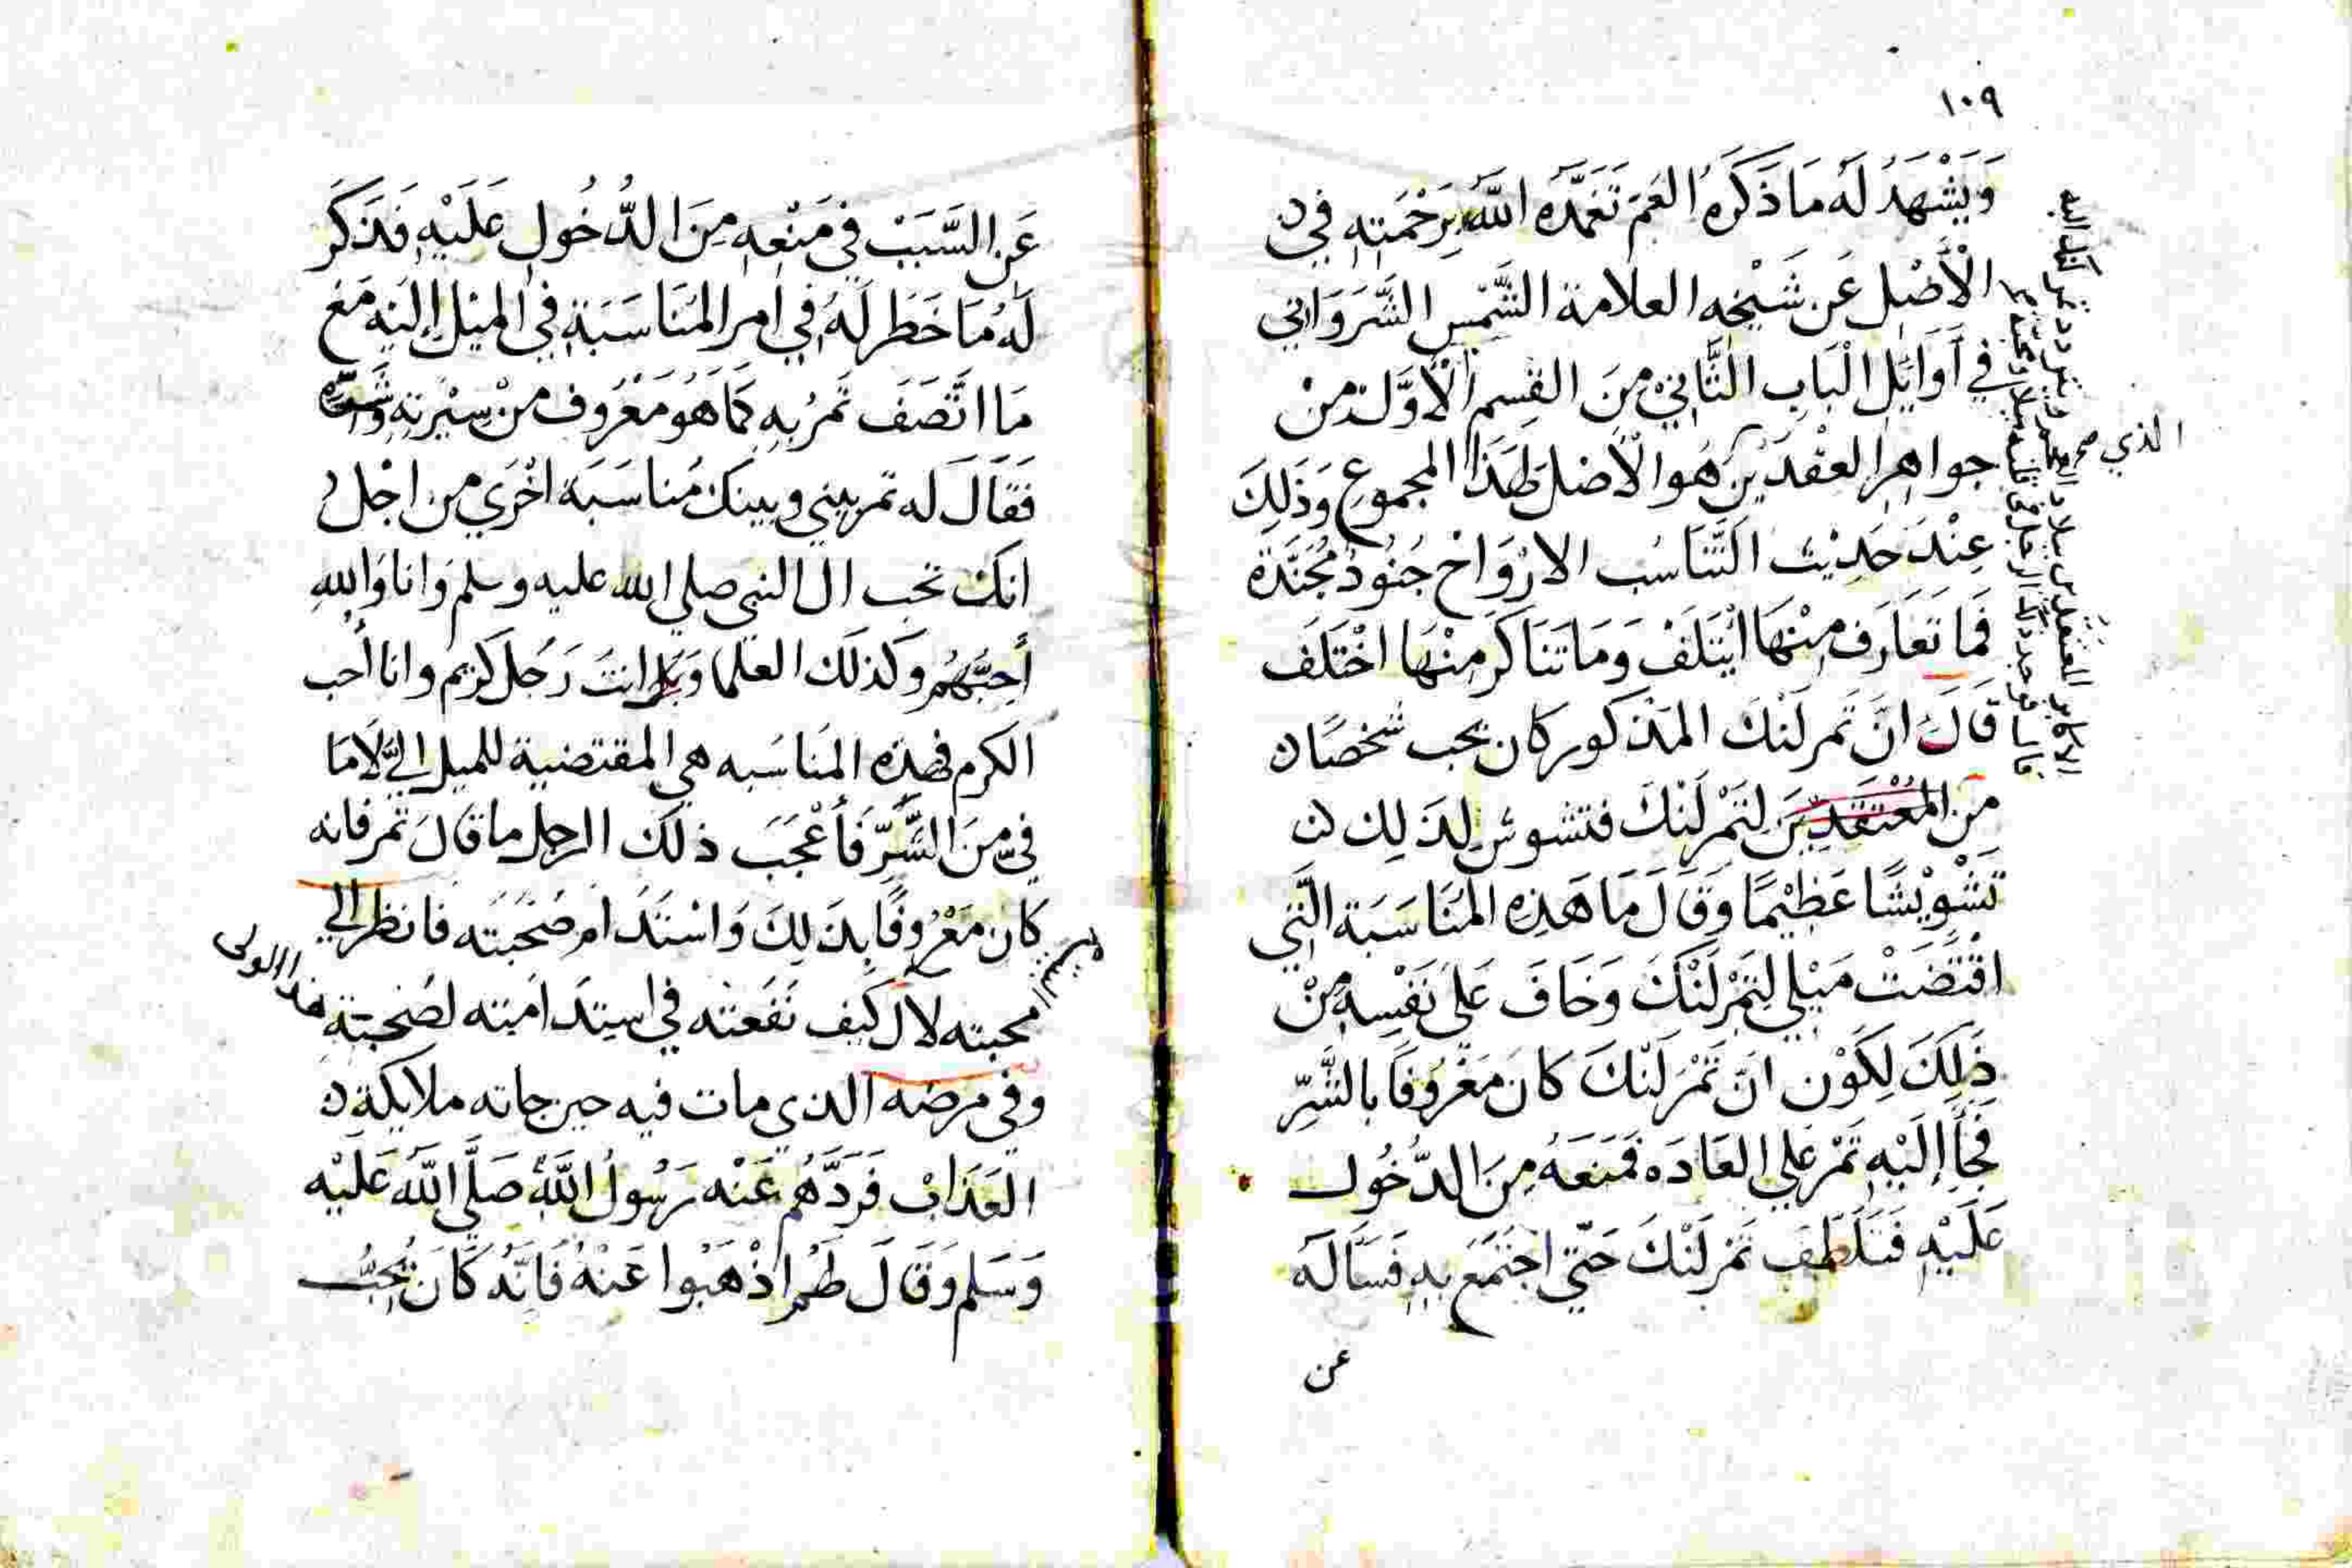 ١٠٩
وَيَشْهَدُ لَهُ مَا ذَكَرَهُ العَمّ تَغَمَّدَهُ اللَّهُ بِرَحْمَتِهِ فِي
الْأَصْلِ عَن شَيْخِهِ العلامة الشَّمْسِ الشَّرَوَانِي
في أَوَايِلِ الْبَابِ الثَّانِي مِنَ القِسمِ الْأَوَّلِ مِنْ
جواهر العقْدَيْنِ هُوَ الْأصْل لِهَذَا المجموع وَذَلِكَ
الذي صح
عِنْدَ حَدِيْثِ التَّنَاسُب الارْوَاحُ جُنُودٌ مُجَنَّدَة
فَمَا تَعَارَف مِنْهَا ائْتَلَفْ وَمَا تَنَاكَرَ مِنْهَا اخْتَلَفَ
قَالَ انَّ تَمرلَنْكَ المَذكور كان يحب شخصًا
مِنَ المُعْتَقَدِيْنَ لِتَمْرلَنْكَ فتشوش لِذَلِك
تَشْوِيْشًا عَظِيْمًا وَقَالَ مَا هَذِهِ المُنَاسَبَة الَّتِي
اقْتَضَتْ مَيْلِي لِتَمْرلَنْكَ وَخَافَ عَلَى نَفْسِهِ مِنْ
ذَلِكَ لِكَوْنِ انَّ تَمْرَلَنْكَ كانَ مَعْرُوفًا بالشَّرِّ
فَجَأَ إِلَيْهِ تَمْر علي العَادَه فَمَنَعَهُ مِنَ الدُّخُول
عَلَيْهِ فَتَلَطَّفَ تَمْرلَنْكَ حَتَّي اجْتَمَعَ بِهِ فَسَأَلَهُ
عن
عَنِ السَّبَبْ فِي مَنْعِهِ مِنَ الدُّخُولِ عَلَيْهِ فَذَكَرَ
لَهُ مَا خَطَرَ لَهُ فِي امر المُنَاسَبَةِ فِي المَيْلِ إِلَيْهِ مَعَ
مَا اتَّصَفَ تَمرُ بِهِ كَمَا هُوَ مَعْرُوف مِنْ سِيْرَتِهِ وَشَرِّه
فَقَالَ له تمر بيني وبينك مُناسَبَة اخْرَي من اجْل
انكَ تحب ال النبي صلي الله عليه وسلم وَانا وَاللهِ
أُحِبُّهُمُ وكذلك العلما وَ انتَ رَجُل كَرِيم وانا أحب
الكرم فهذِه المُنَاسَبه هي المقتضية للميل اليَّ لَا مَا
فِيَّ مِنَ الشَّرِّ فَأعْجَبَ ذلكَ الرجل ما قَالَ تَمر فانه
كان مَعْرُوفًا بِذَلِكَ وَاسْتَنَدَ امر صُحْبَتِه فانظر الي
هذا المولى
محبته لال كيف نَفَعَتْه في استِدَامَته لصُحبتِة
وفي مرضه الذي مات فيه حين جاته ملايكة
العَذَابْ فَرَدَّهُم عَنْه رَسُولُ اللَّهِ صَلَّي اللَّهُ عَلَيْهِ
وَسَلم وَقَالَ لَهُمُ اذْهَبُوا عَنْهُ فَانَّهُ كَانَ يُحِبُّ